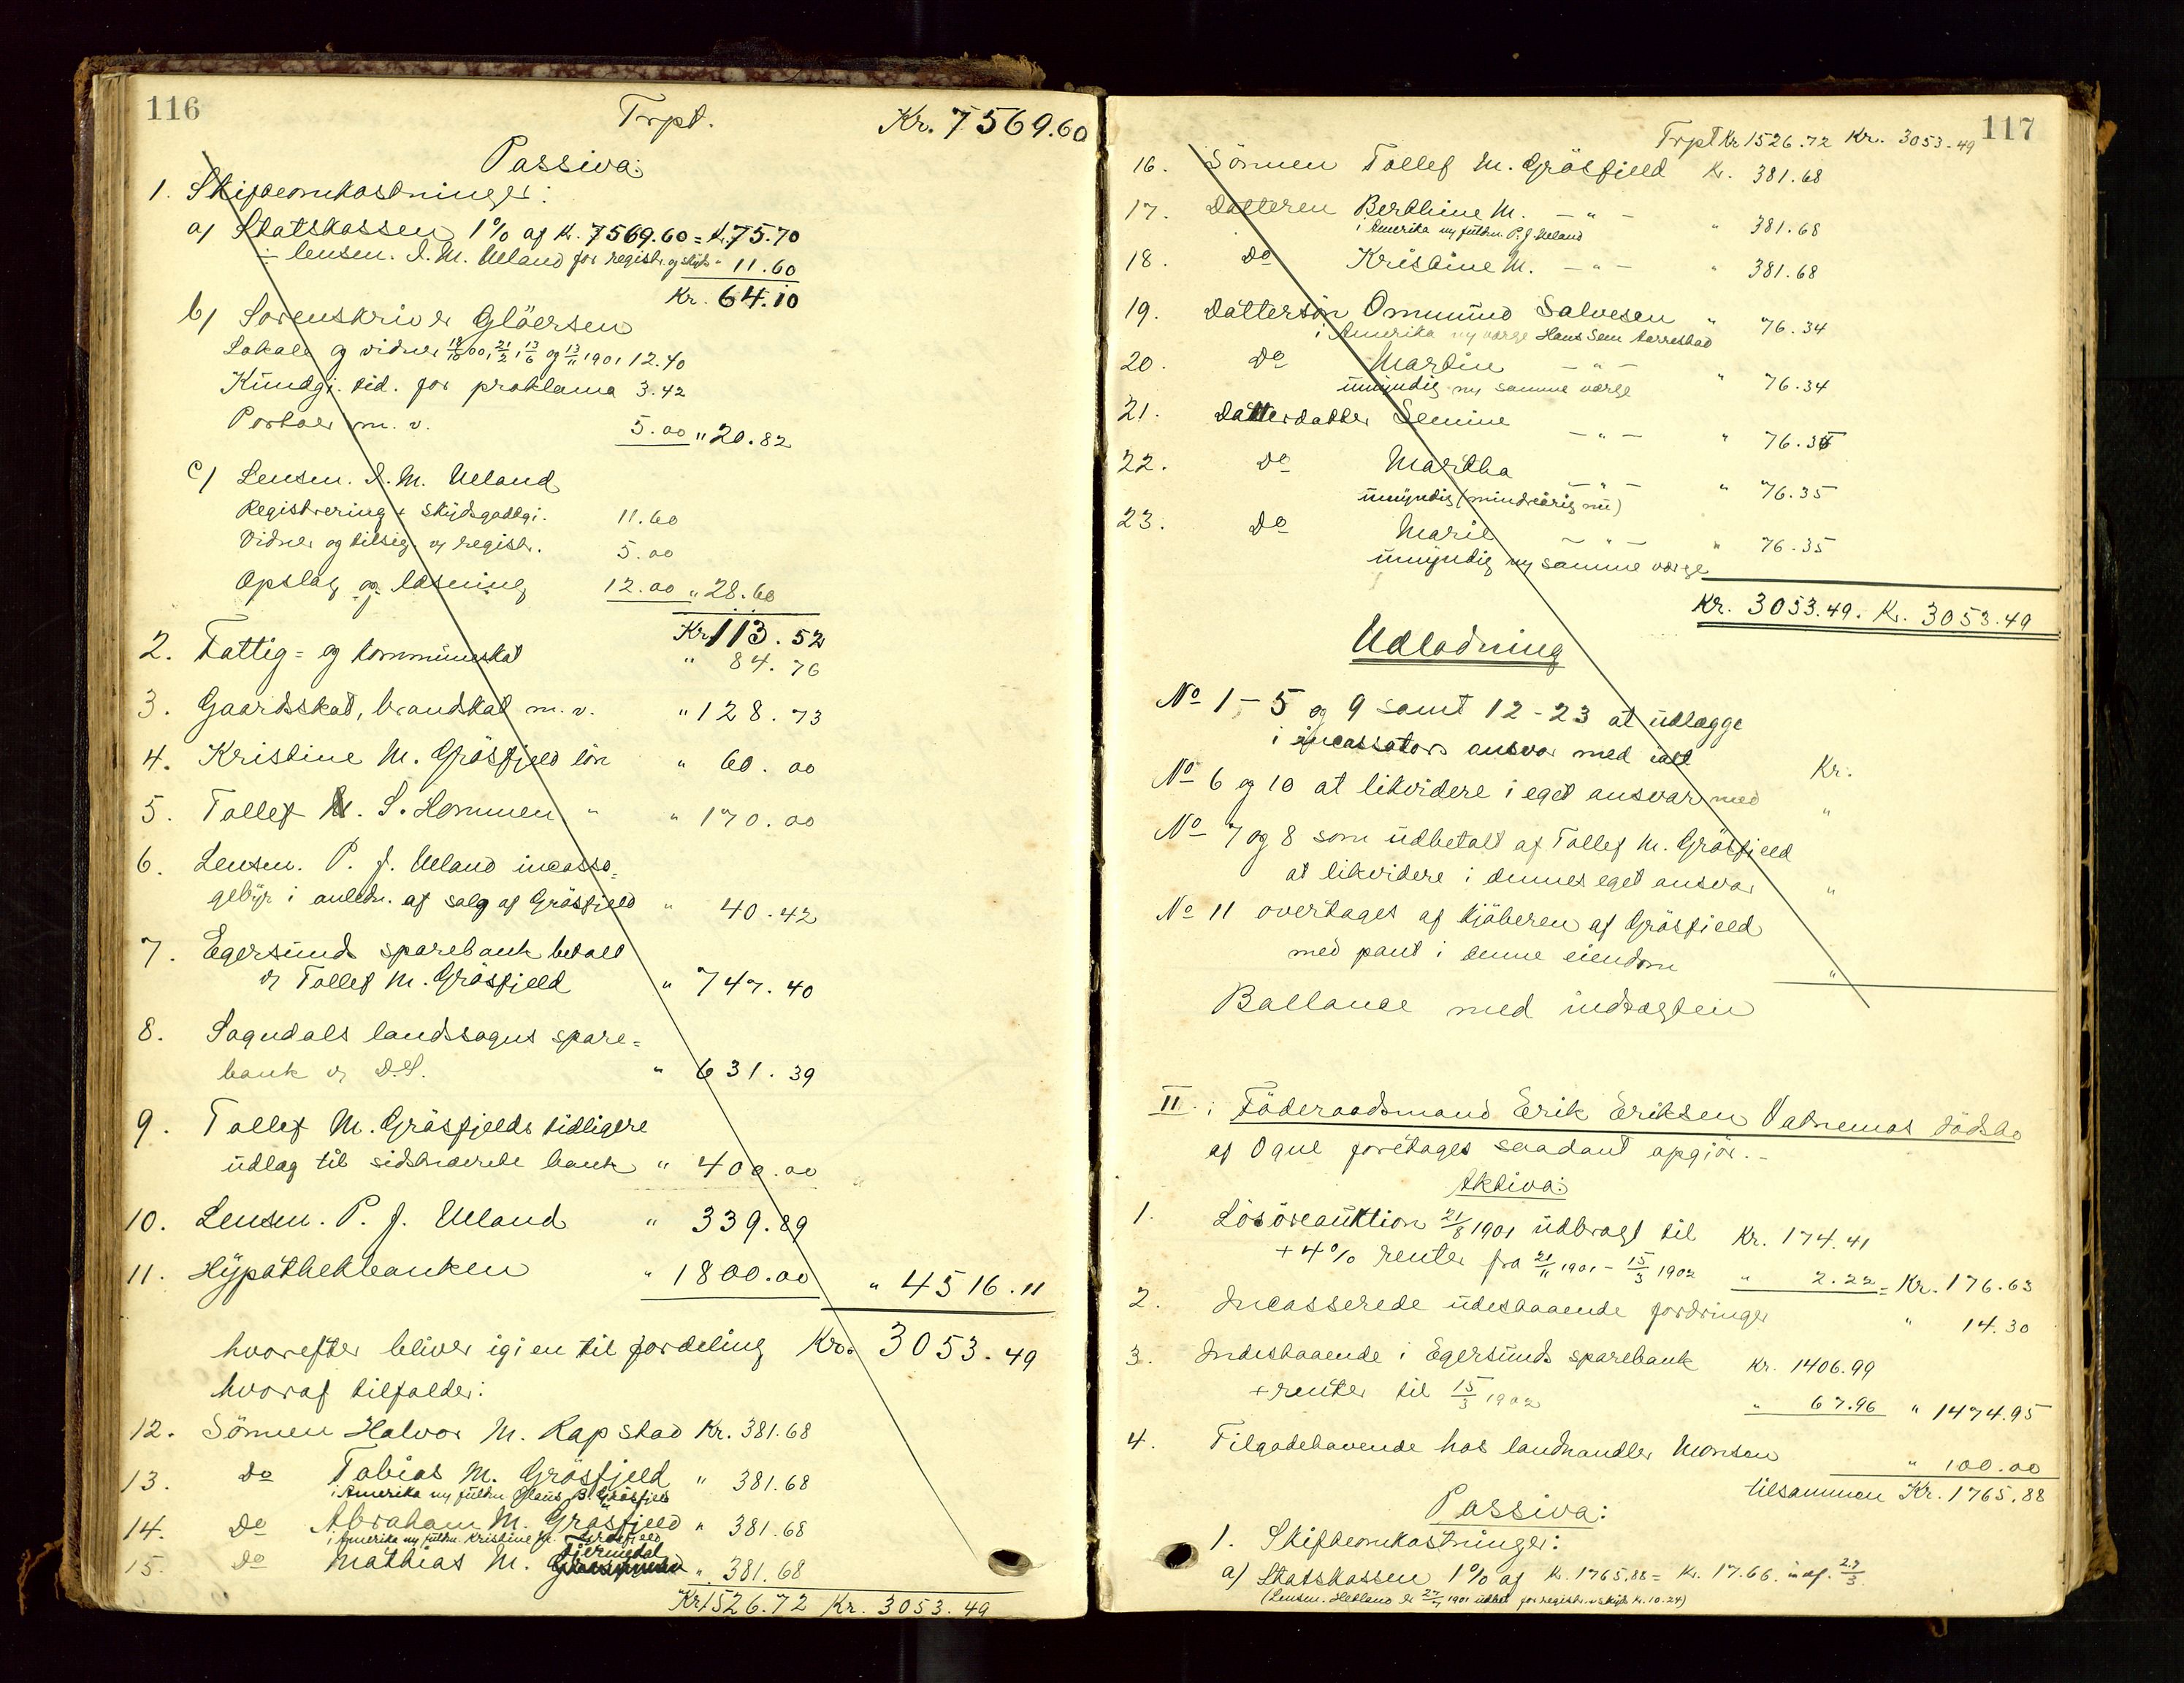 116
Trpt. Kr. 7569.60
Passiva:
1. Skifteomkostninger:
a) Statskassen 1% af Kr. 7569.60 = Kr. 75.70
÷ lensm. I. M. Ueland for registr. og skyds " 11.60
Kr. 64.10
b) Sorenskriver Glöersen
Lokale og vidner 18/10 00, 21/2, 13/6 og 13/11 1901 12.40
Kundgj. tid. for proklama 3.42
Portoer m. v. 5.00 " 20.82
c) Lensm. I. M. Ueland
Registrering + skydsgodtgj. 11.60
Vidner og tilsig. v registr. 5.00
Opslag og læsning 12.00 " 28.60
Kr 113.52
2. Fattig= og kommuneskat " 84.76
3. Gaardsskat, brandskat m. v. " 128.73
4. Kristine M. Gräsfjeld lön " 60.00
5. Tollef S. Hommen " " 170.00
6. Lensm. P. J. Ueland incasso=
gebyr i anledn. af salg af Gräsfjeld " 40.42
7. Egersunds sparebank betalt
v Tollef M. Gräsfjeld " 747.40
8. Sogndals landssogns spare=
bank v D.S. " 631.39
9. Tollef M. Gräsfjelds tidligere
udlæg til sidstnævnte bank " 400.00
10. Lensm. P. J. Ueland " 339.89
11. Hypothekbanken " 1800.00 " 4516.11
hvorefter bliver igjen til fordeling Kr. 3053.49
hvoraf tilfalder:
12. Sönnen Halvor M. Rapstad Kr. 381.68
13. Do Tobias M. Gräsfjeld " 381.68
i Amerika ny fuldm. Claus B. Gräsfjeld
14. Do Abraham M. Gräsfjeld " 381.68
i Amerika ny fuldm. Kristine M. Gräsfjeld
15. Do Mathias M. " 381.68
Kr 1526.72 Kr. 3053.49
117
Trpt Kr 1526.72 Kr. 3053.49
16. Sönnen Tollef M. Gräsfjeld Kr. 381.68
17. Datteren Berthine M. — " — " 381.68
i Amerika ny fuldm. P. J. Ueland
18. Do Kristine M. — " — " 381.68
19. Dattersön Ommund Salvesen " 76.34
i Amerika ny værge Hans Sem Aarrestad
20. Do Martin — " — " 76.34
umyndig ny samme værge
21. Datterdatter Semine — " — " 76.35
22. Do Martha — " — " 76.35
umyndig (mindreårig nu)
23. Do Marie — " — " 76.35
umyndig ny samme værge
Kr. 3053.49. Kr. 3053.49
Udlodning
No 1-5 og 9 samt 12-23 at udlægge
i incassators ansvar med ialt Kr.
No 6 og 10 at likvidere i eget ansvar med "
No 7 og 8 som udbetalt af Tollef M. Gräsfjeld
at likvidere i dennes eget ansvar "
No 11 overtages af kjöberen af Gräsfjeld
med pant i denne eiendom "
Ballance med indtægten
II. i Föderaadsmand Erik Eriksen Vatnemos dödsbo
af Ogne foretages saadant opgjör.-
Aktiva:
1. Lösöreauktion 21/8 1901 udbragt til Kr. 174.41
+ 4% renter fra 21/11 1901 - 15/3 1902 " 2.22 = Kr. 176.63
2. Incasserede udestaaende fordringer " 14.30
3. Indestaaende i Egersunds sparebank Kr. 1406.99
+ renter til 15/3 1902 " 67.96 " 1474.95
4. Tilgodehavende hos landhandler Monsen " 100.00
tilsammen Kr. 1765.88
Passiva:
1. Skifteomkostninger:
a) Statskassen 1% af Kr. 1765.88 = Kr. 17.66. indf. 27/3.
(Lensm. Hetland er 27/11 1901 udbet. for registr. + skyds Kr. 10.24)